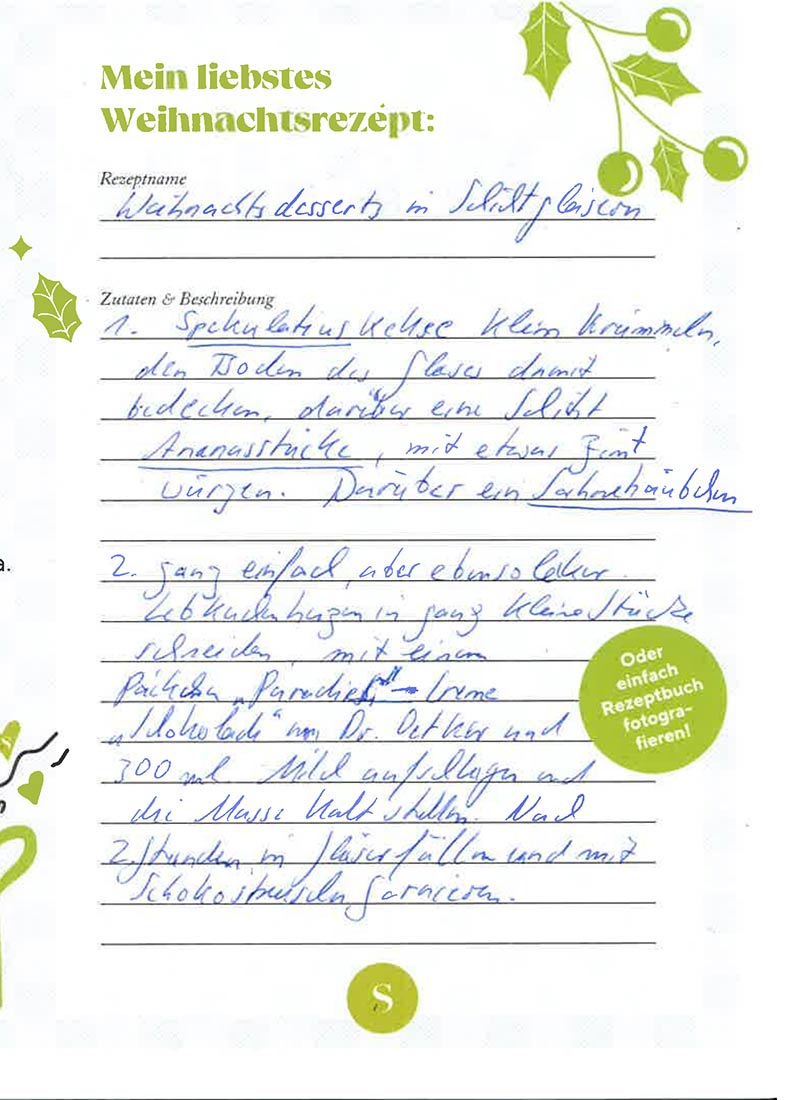 Mein liebstes
Weihnachtsrezept:
Rezeptname
Weihnachtsdesserts in Schichtgläsern
Zutaten & Beschreibung
1. Spekulatiuskekse klein krümmeln,
den Boden des Glases damit
bedecken, darüber eine Schicht
Ananasstücke, mit etwas Zimt
würzen. Darüber ein Sahnehäubchen
a.
2. ganz einfach, aber ebenso lecker.
Lebkuchenherzen in ganz kleine Stücke
schneiden, mit einem
Päckchen „Paradies - Creme
„Schokolade“ von Dr. Oetker und
300 ml Milch aufschlagen und
die Masse kalt stellen. Nach
2 Stunden in Gläser füllen und mit
Schokostreuseln garnieren.
Oder
einfach
Rezeptbuch
fotogra-
fieren!
S